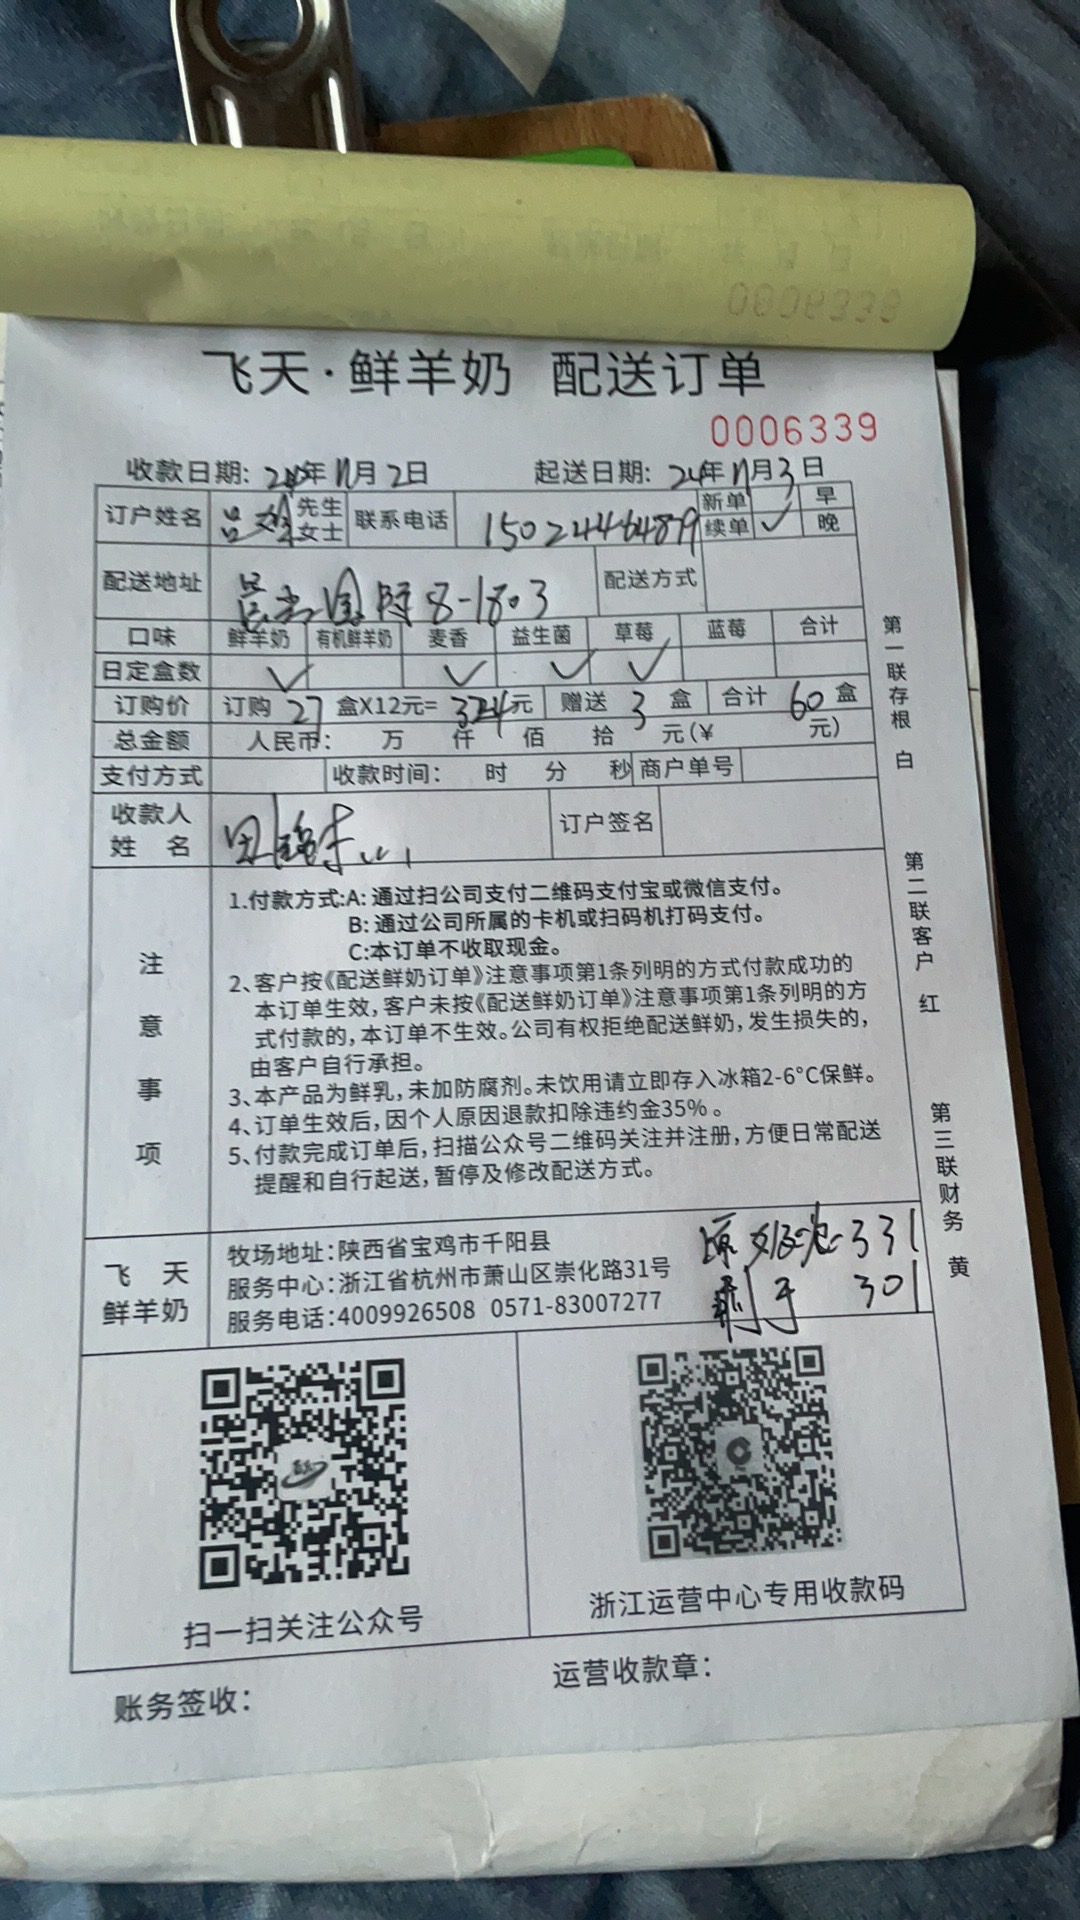 飞天·鲜羊奶 配送订单
0006339
收款日期: 24年11月2日 起送日期: 24年11月3日
订户姓名 吕 先生 女士 联系电话 15024464879 新单 续单 ✓ 早 晚
配送地址 国际8-1803 配送方式
口味 鲜羊奶 有机鲜羊奶 麦香 益生菌 草莓 蓝莓 合计
日定盒数 ✓ ✓ ✓ ✓
订购价 订购 27 盒X12元= 324元 赠送 3 盒 合计 60 盒
总金额 人民币: 万 仟 佰 拾 元(¥ 元)
支付方式 收款时间: 时 分 秒 商户单号
收款人姓名 田 订户签名
注意事项
1.付款方式:A: 通过扫公司支付二维码支付宝或微信支付。
B: 通过公司所属的卡机或扫码机打码支付。
C:本订单不收取现金。
2、客户按《配送鲜奶订单》注意事项第1条列明的方式付款成功的
本订单生效,客户未按《配送鲜奶订单》注意事项第1条列明的方
式付款的,本订单不生效。公司有权拒绝配送鲜奶,发生损失的,
由客户自行承担。
3、本产品为鲜乳,未加防腐剂。未饮用请立即存入冰箱2-6°C保鲜。
4、订单生效后,因个人原因退款扣除违约金35%。
5、付款完成订单后,扫描公众号二维码关注并注册,方便日常配送
提醒和自行起送,暂停及修改配送方式。
飞天鲜羊奶
牧场地址:陕西省宝鸡市千阳县
服务中心:浙江省杭州市萧山区崇化路31号
服务电话:4009926508 0571-83007277
331
301
扫一扫关注公众号
浙江运营中心专用收款码
账务签收:
运营收款章:
第一联存根 白
第二联客户 红
第三联财务 黄